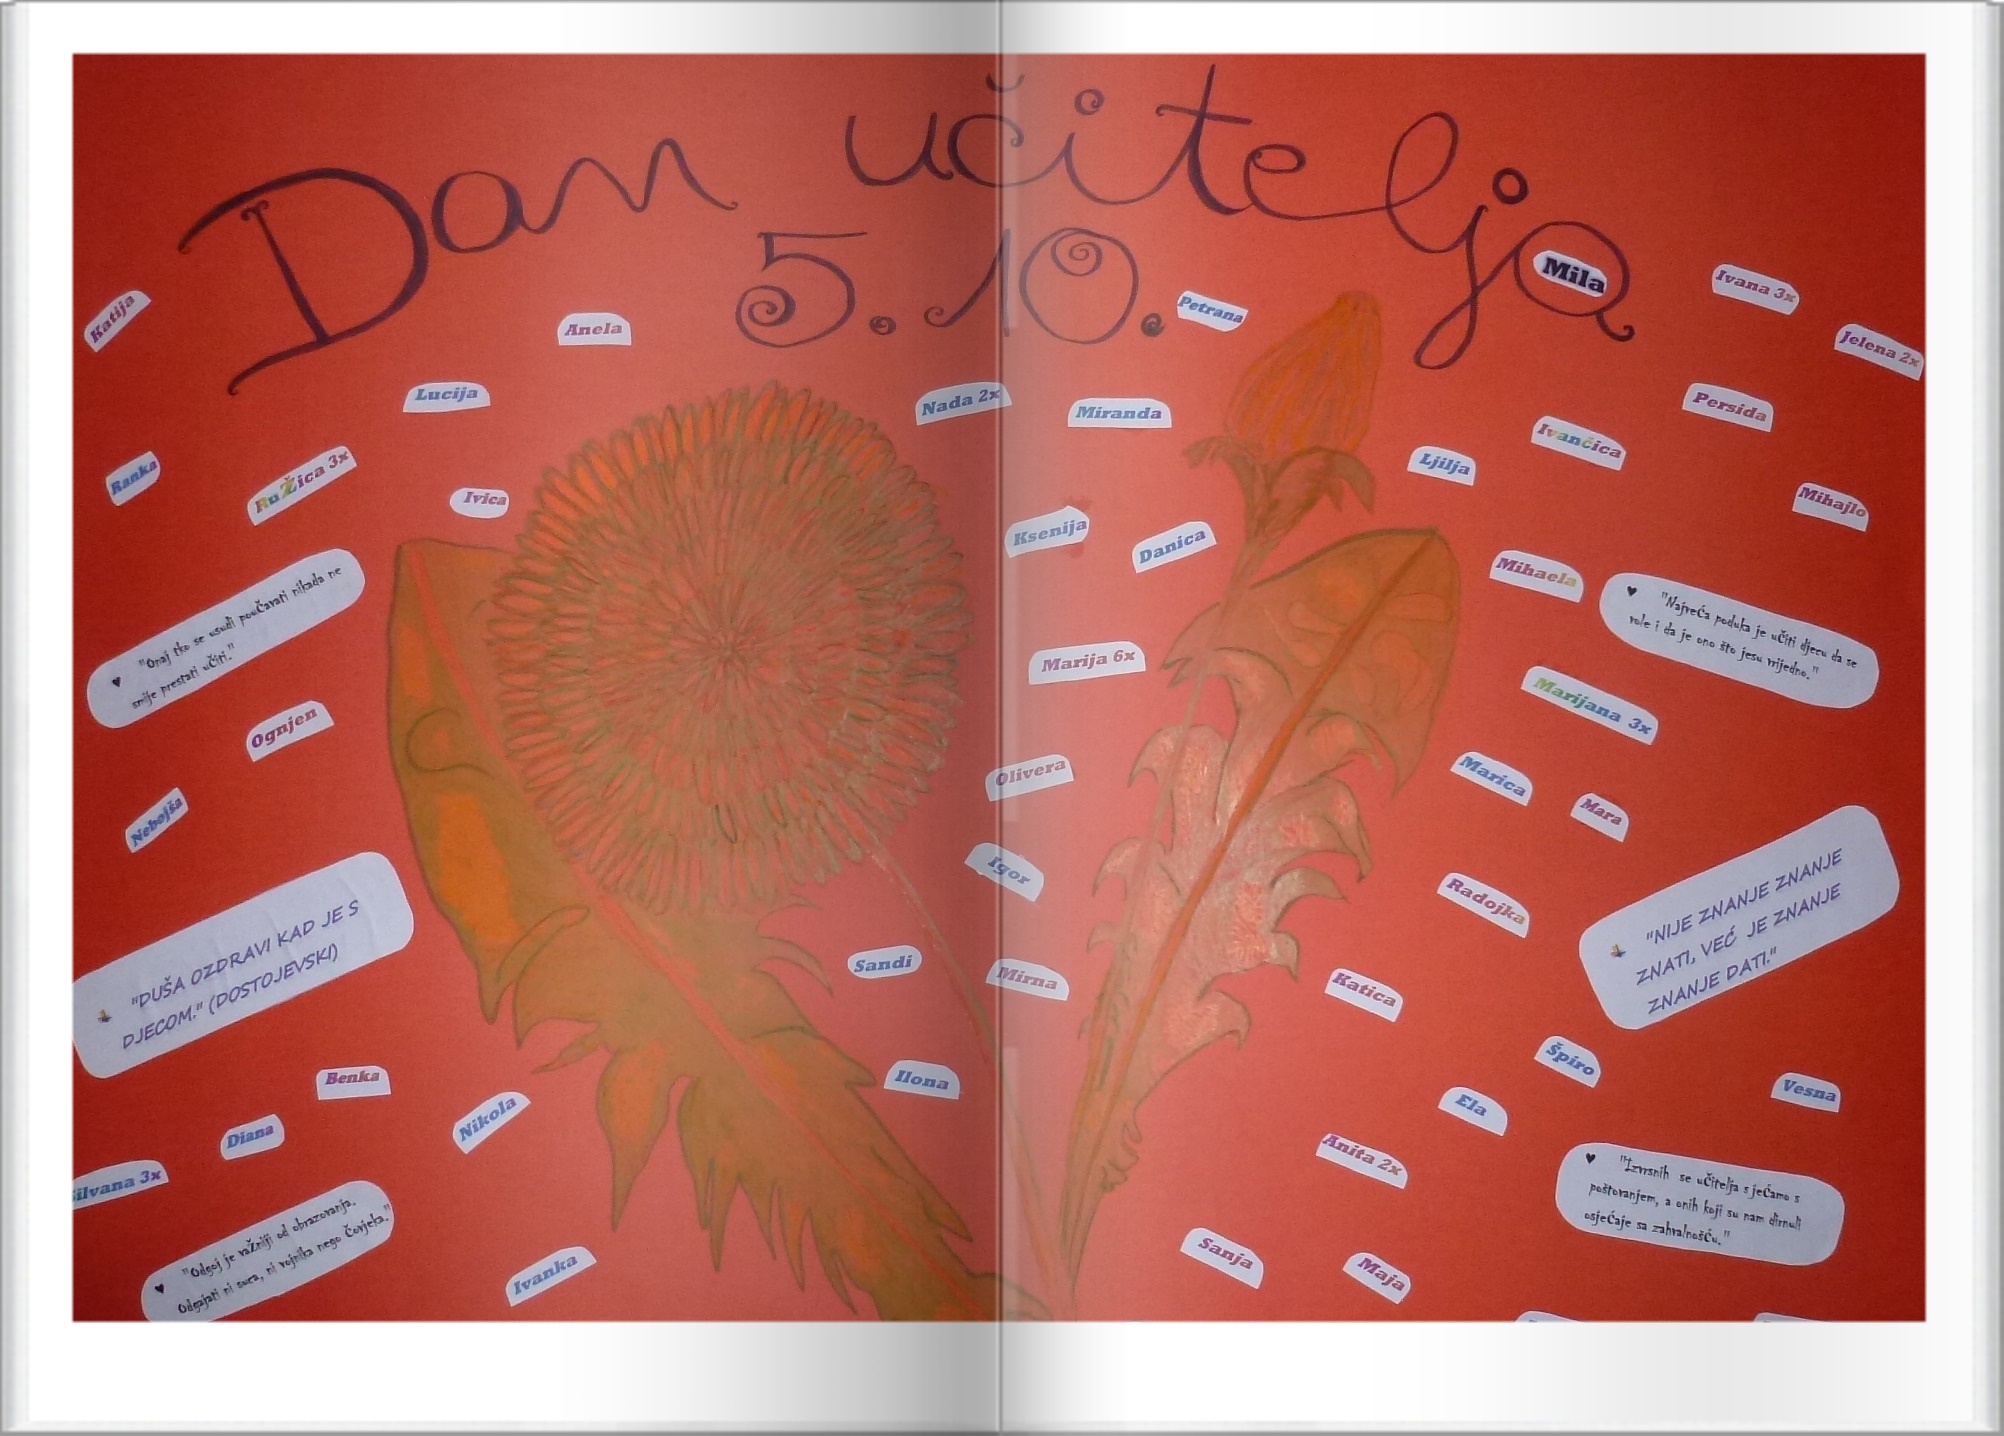 Dan učitelja
5.10.
Mila
Ivana 3x
Katija
Petrana
Anela
Jelena 2x
Lucija
Nada 2x
Miranda
Persida
Ivančica
Ljilja
Ranka
RuŽica 3x
Ivica
Mihajlo
Ksenija
Danica
Mihaela
"Onaj tko se usudi pouČavati nikada ne
smije prestati uČiti."
"NajveĆa poduka je uČiti djecu da se
vole i da je ono što jesu vrijedno."
Marija 6x
Marijana 3x
Ognjen
Olivera
Marica
Mara
Nebojša
Igor
Radojka
"NIJE ZNANJE ZNANJE
ZNATI, VEĆ JE ZNANJE
ZNANJE DATI."
"DUŠA OZDRAVI KAD JE S
DJECOM." (DOSTOJEVSKI)
Sandi
Mirna
Katica
Špiro
Benka
Ilona
Vesna
Nikola
Ela
Diana
Anita 2x
Silvana 3x
"Izvrsnih se uČitelja sjeĆamo s
poštovanjem, a onih koji su nam dirnuli
osjeĆaje sa zahvalnošĆu."
"Odgoj je vaŽniji od obrazovanja.
Odgajati ni suca, ni vojnika nego Čovjeka."
Ivanka
Sanja
Maja